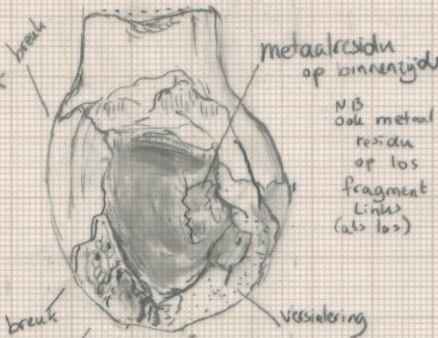 breuk
metaalresidu
op binnenzijde
NB
ook metaal
residu
op los
fragment
Links
(als los)
breuk
versintering